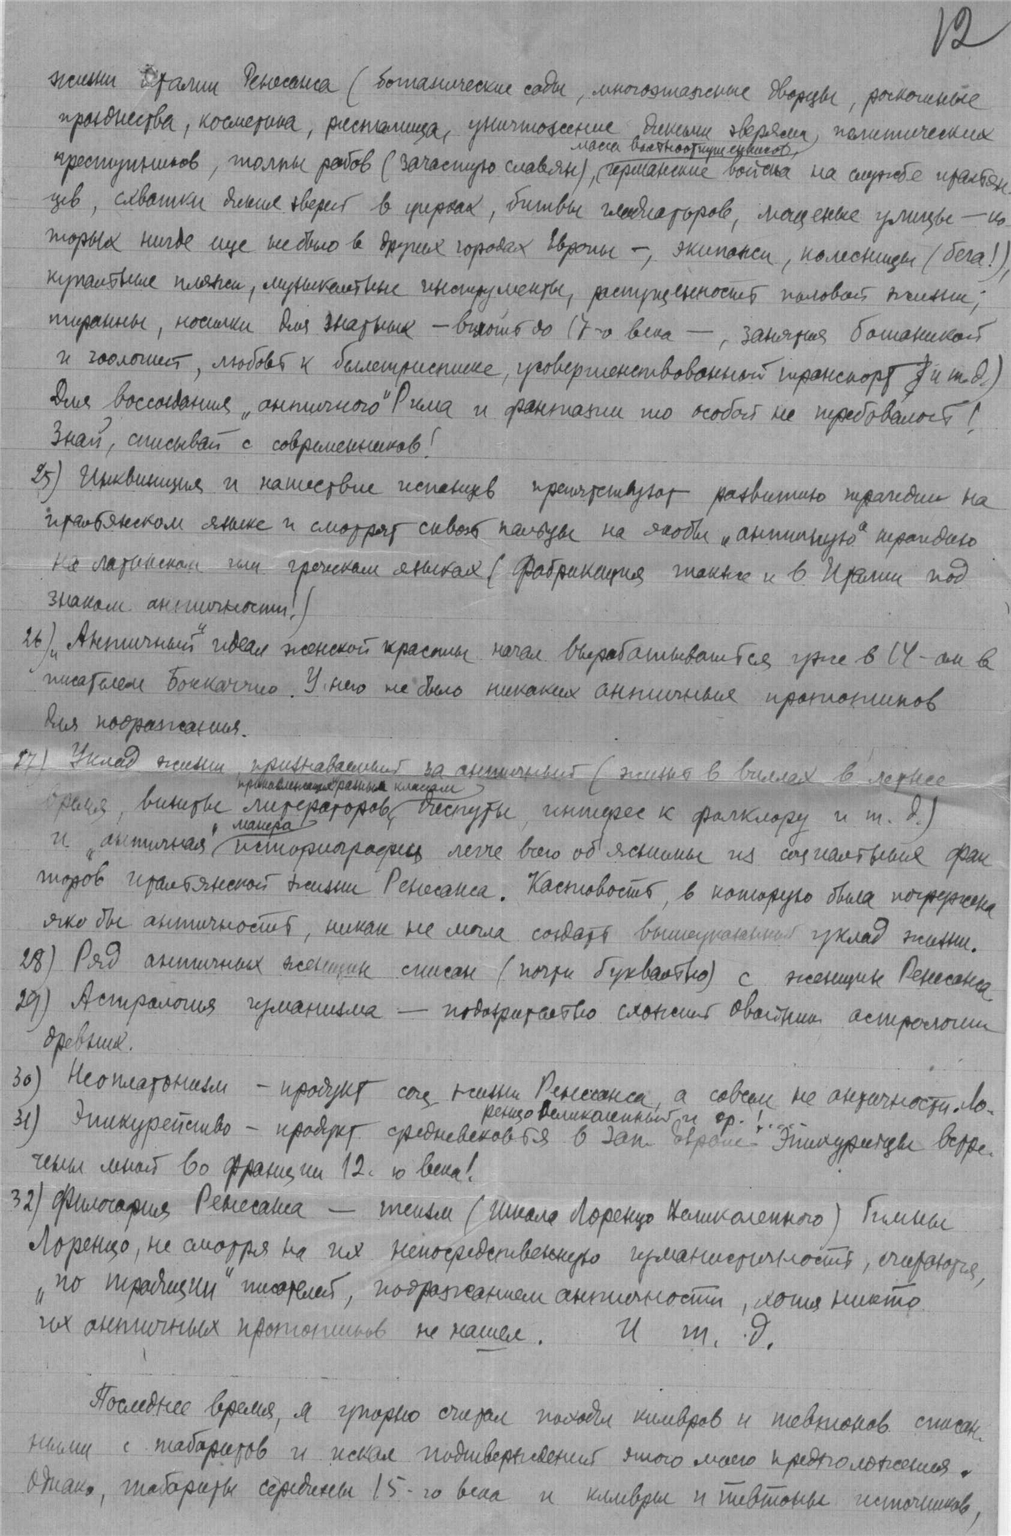 12
жизни Италии Ренесанса (ботанические сады, многоэтажные дворцы, роскошные
празднества, косметика, ристалища, уничтожение дикими зверями политических
масса вольноотпущенников,
преступников, толпы рабов (зачастую славян), германские войска на службе итальян-
цев, схватки диких зверей в цирках, битвы гладиаторов, мощеные улицы — ко-
торых нигде еще не было в других городах Европы —, экипажи, колесницы (бега!),
купальные пляжи, музыкальные инструменты, распущенность половой жизни;
тираны, носилки для знатных — вплоть до 17-о века —, занятия ботаникой
и зоологией, любовь к беллетристике, усовершенствованный транспорт и т.д.)
Для воссоздания „античного" Рима и фантазии то особой не требовалось!
Знай, списывай с современников!
25) Инквизиция и нашествие испанцев препятствуют развитию трагедии на
итальянском языке и смотрят сквозь пальцы на якобы „античную" трагедию
на латинском или греческом языках (фабрикация также и в Италии под
знаком античности!)
26) „Античный" идеал женской красоты начал вырабатываться уже в 14-ом в
писателем Боккаччио. У него не было никаких античных прототипов
для подражания.
27) Уклад жизни признаваемый за античный (жизнь в виллах в летнее
время, визиты литераторов, диспуты, интерес к фолклору и т. д.)
манера
и „античная" историографии легче всего объяснимы из социальных фак
торов итальянской жизни Ренесанса. Кастовость, в которую была погружена
яко бы античность, никак не могла создать вышеуказанный уклад жизни.
28) Ряд античных женщин списан (почти буквально) с женщин Ренесанса
29) Астрология гуманизма — подозрительно схожий двойник астрологии
древних.
30) Неоплатонизм — продукт соц жизни Ренессанса, а совсем не античности. Ло-
ренцо Великолепный и др.!
31) Эпикурейство — продукт средневековья в Зап. Европе. Эпикурейцы встре-
чены мной во Франции 12-ю века!
32) Философия Ренесанса — теизм (школа Лоренцо Великолепного) Гимны
Лоренцо, не смотря на их непосредственную гуманистичность, считаются,
„по традиции" писателей, подражанием античности, хотя никто
их античных прототипов не нашел. И т. д.
Последнее время, я упорно считал походы кимвров и тевтонов списан-
ными с таборитов и искал подтверждений этого моего предположения.
Однако, табориты середины 15-го века и кимвры и тевтоны источников,